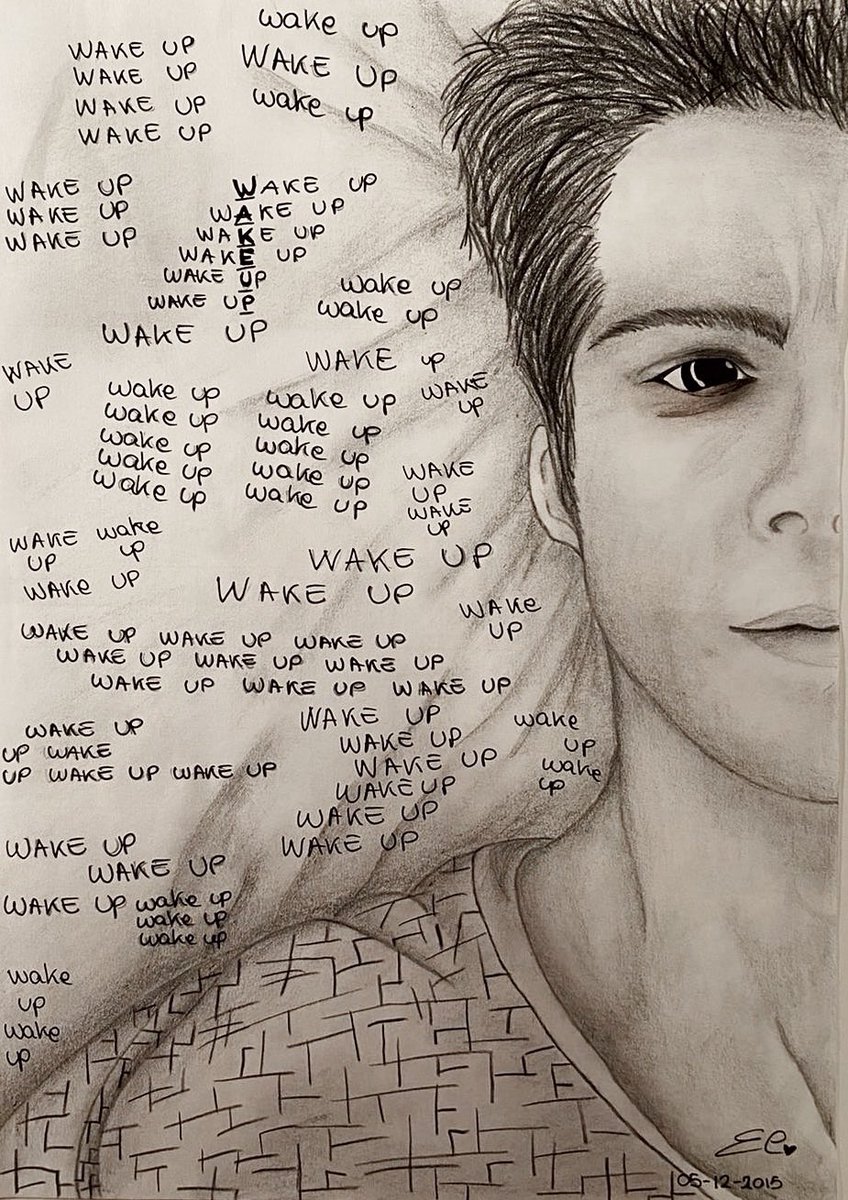 wake up
WAKE UP
WAKE UP
WAKE UP
WAKE UP
WAKE UP
wake up
WAKE UP
WAKE UP
WAKE UP
WAKE UP
WAKE UP
WAKE UP
WAKE UP
WAKE UP
WAKE UP
WAKE UP
wake up
wake up
WAKE UP
WAKE UP
WAKE
UP
wake up
wake up
wake up
wake up
wake up
wake up
wake up
wake up
wake up
wake up
WAKE
UP
WAKE
UP
WAKE
UP
WAKE
UP
wake
up
WAKE UP
WAKE UP
WAKE UP
WAKE
UP
WAKE UP WAKE UP WAKE UP
WAKE UP WAKE UP WAKE UP
WAKE UP WAKE UP WAKE UP
WAKE UP
UP WAKE
UP WAKE UP WAKE UP
WAKE UP
WAKE UP
WAKE UP
WAKE UP
WAKE UP
WAKE UP
wake
up
wake
up
WAKE UP
WAKE UP
WAKE UP wake up
wake up
wake up
wake
up
wake
up
05-12-2015